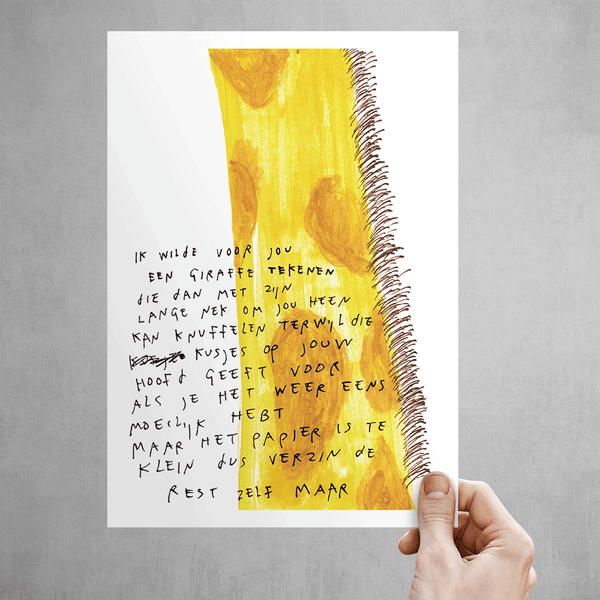 IK WILdE VOOR JOU
EEN GIRAFFE TEKENEN
diE dAN MET ZIJN
LANGE NEK OM JOU HEEN
KAN KNUFFELEN TERWIJL diE
KUSJES OP JOUW
HOOFd GEEFT VOOR
ALS JE HET WEER EENS
MOEILIJK HEBT
MAAR HET PAPIER IS TE
KLEIN dUS VERZIN dE
REST ZELF MAAR